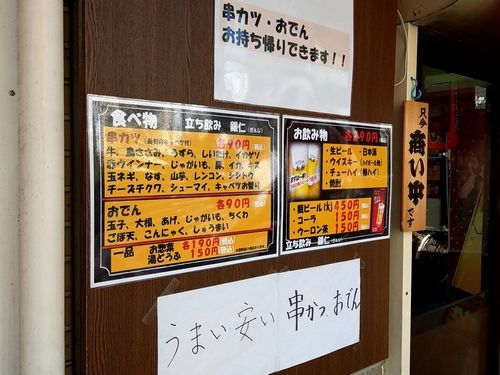 串カツ・おでん
お持ち帰りできます!!
食べ物 立ち飲み 銀仁(ぎんじ)
串カツ 各90円(税込)
牛、鳥ささみ、うずら、しいたけ、イカゲソ
赤ウインナー、じゃがいも、豚、イカ、キス
玉ネギ、なす、山芋、レンコン、シシトウ
チーズチクワ、シューマイ、キャベツお替り
おでん 各90円(税込)
玉子、大根、あげ、じゃがいも、ちくわ
ごぼ天、こんにゃく、しゅうまい
一品 お惣菜 各190円(税込)
湯どうふ 150円(税込)
お飲み物 各290円(税込)
・生ビール ・日本酒
・ウイスキー
・チューハイ
・焼酎
・瓶ビール(大) 450円
・コーラ 150円
・ウーロン茶 150円
立ち飲み 銀仁(ぎんじ)
只今
商い中
です
うまい安い 串かつ、おでん